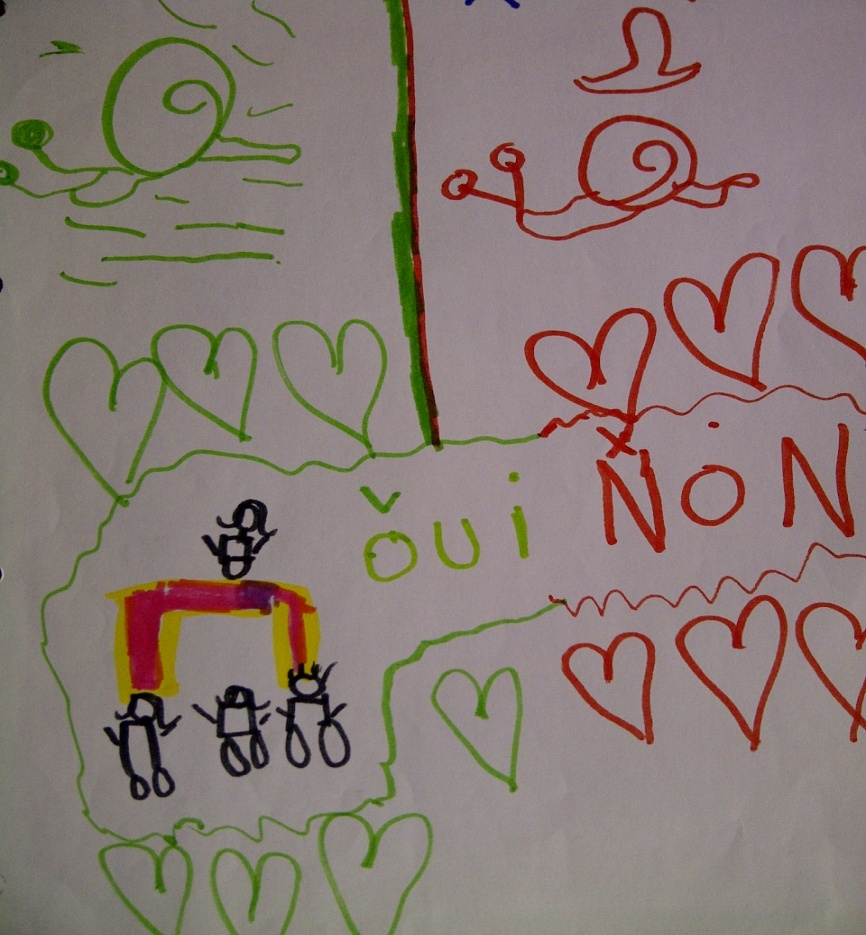 OUI NON